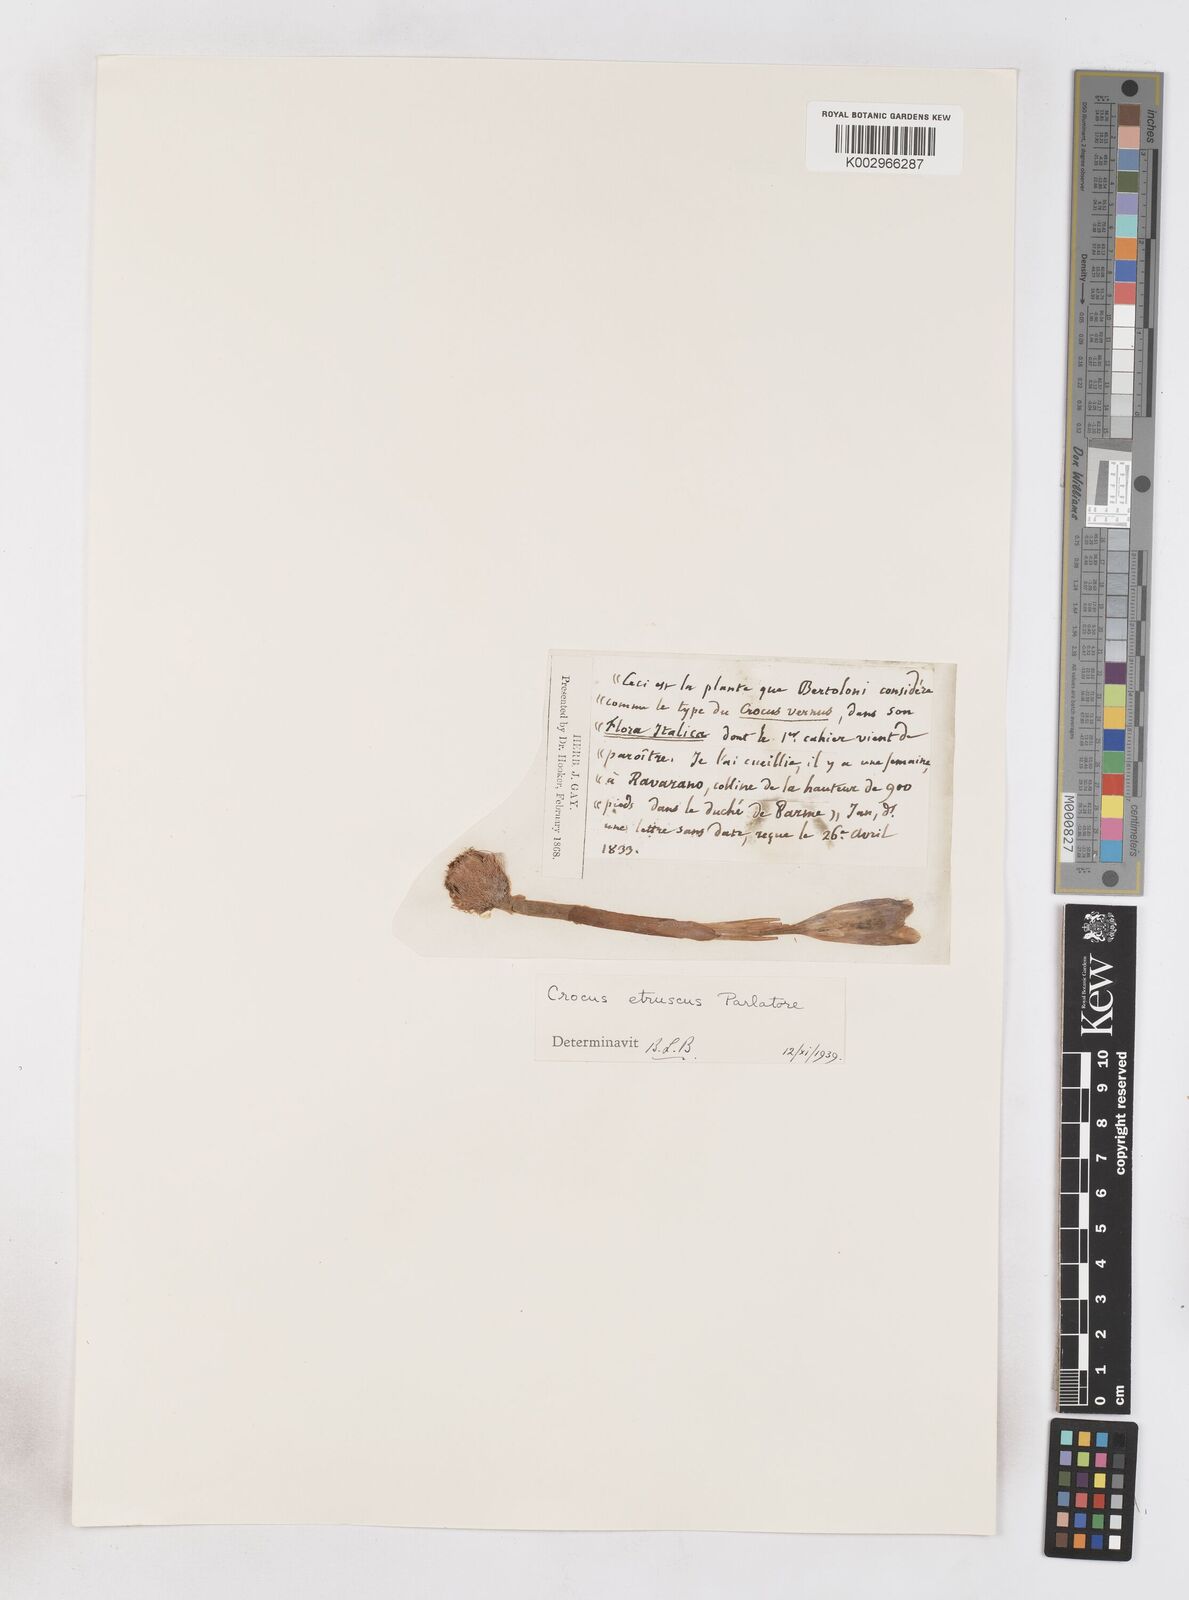 ROYAL BOTANIC GARDENS KEW
K002966287
Presented by Dr. Hooker, Febraury 1868.
HERB. J. GAY.
"Ceci est la plante que Bertoloni considère
"comme le type du Crocus vernus, dans son
"Flora Italica dont le 1er cahier vient de
"paroître. Je l'ai cueillie, il y a une semaine,
"à Ravarano, colline de la hauteur de 900
"pieds dans le duché de Parme", Jan, ds.
une lettre sans date, reçue le 26e Avril
1833.
Crocus etruscus Parlatore
Determinavit B.L.B. 12/xi/1939.
inches
Density
Don Williams
M000827
centimeters
Royal Botanic Gardens
Kew
0 1 2 3 4 5 6 7 8 9 10
cm
copyright reserved